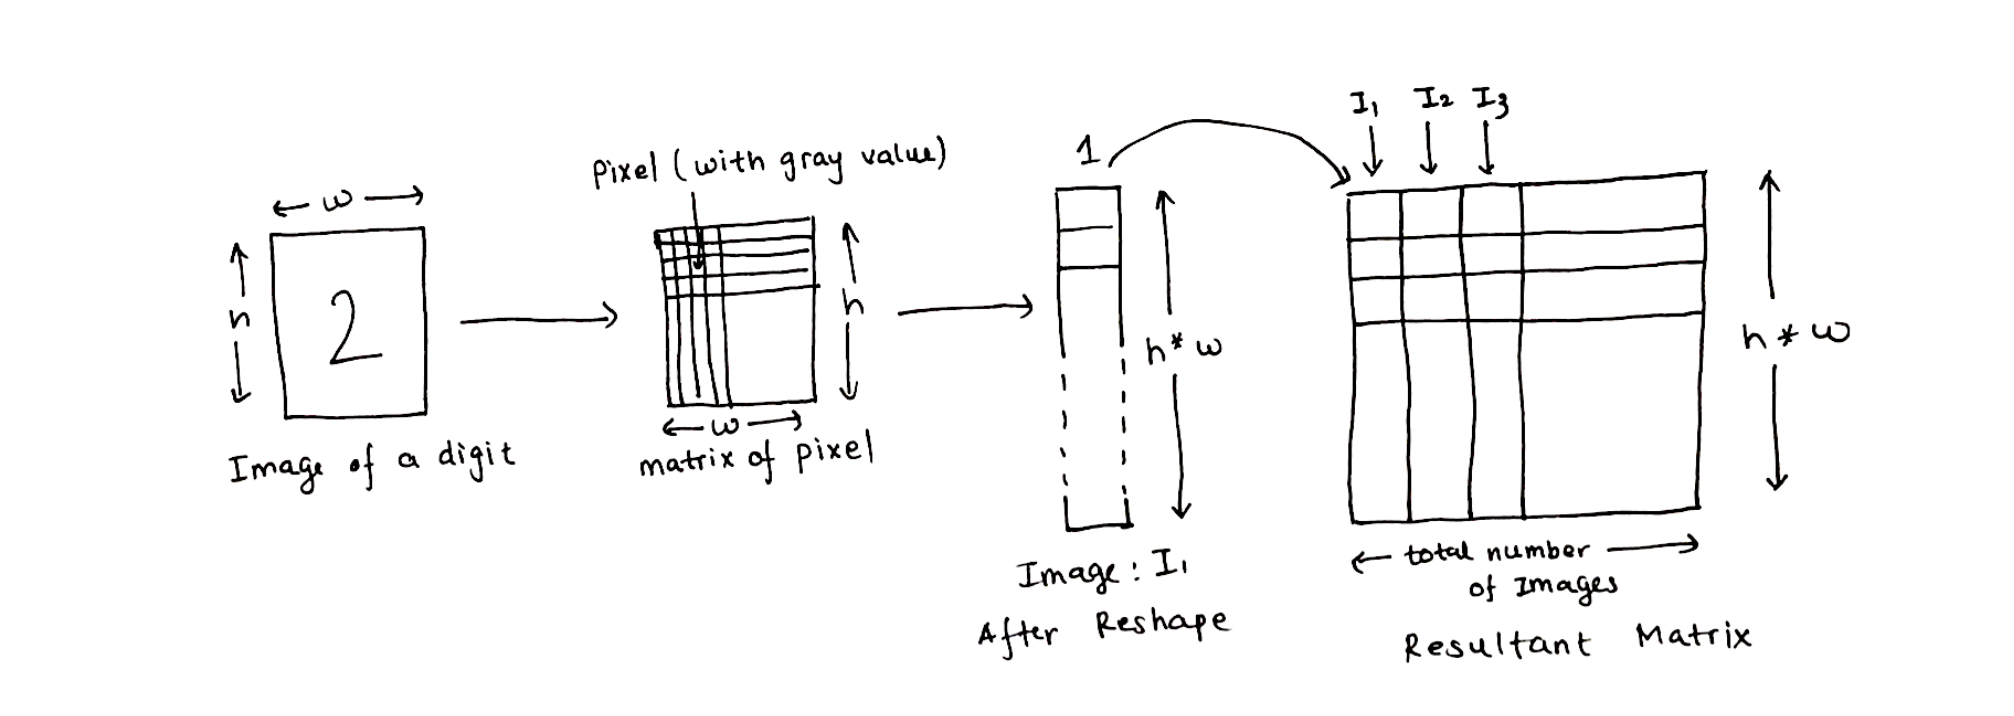 ← w →
h
2
Image of a digit
Pixel (with gray value)
h
← w →
matrix of pixel
1
h * w
Image : I₁
After Reshape
I₁ I₂ I₃
h * w
← total number →
of Images
Resultant Matrix